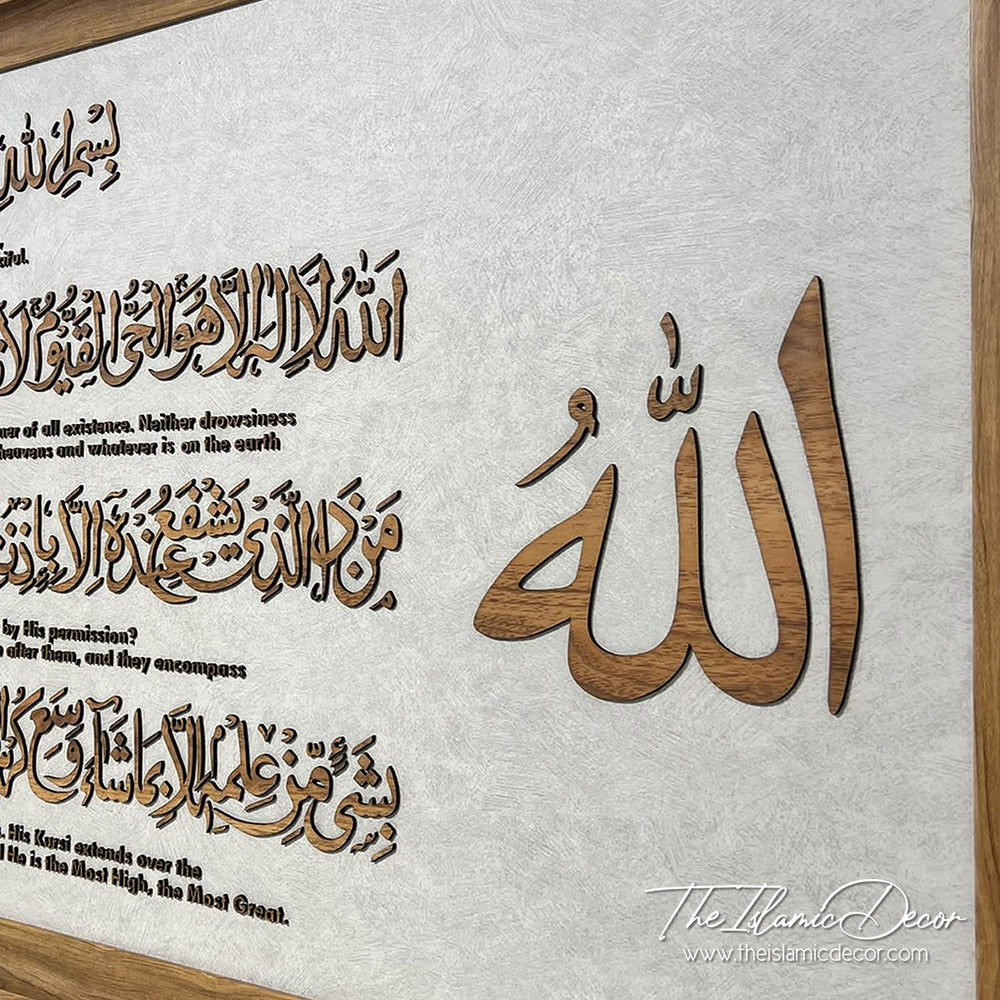 بِسْمِ اللهِ
ciful.
اَللّٰهُ لَا اِلٰهَ اِلَّا هُوَ ۚ اَلْحَیُّ الْقَیُّوْمُ ۚ لَا
of all existence. Neither drowsiness
heavens and whatever is on the earth
مَنْ ذَا الَّذِیْ یَشْفَعُ عِنْدَهٗۤ اِلَّا بِاِذْنِ
by His permission?
after them, and they encompass
بِشَیْءٍ مِّنْ عِلْمِهٖۤ اِلَّا بِمَا شَآءَ ۚ وَسِعَ
His Kursi extends over the
He is the Most High, the Most Great.
اللهُ
The Islamic Decor
www.theislamicdecor.com